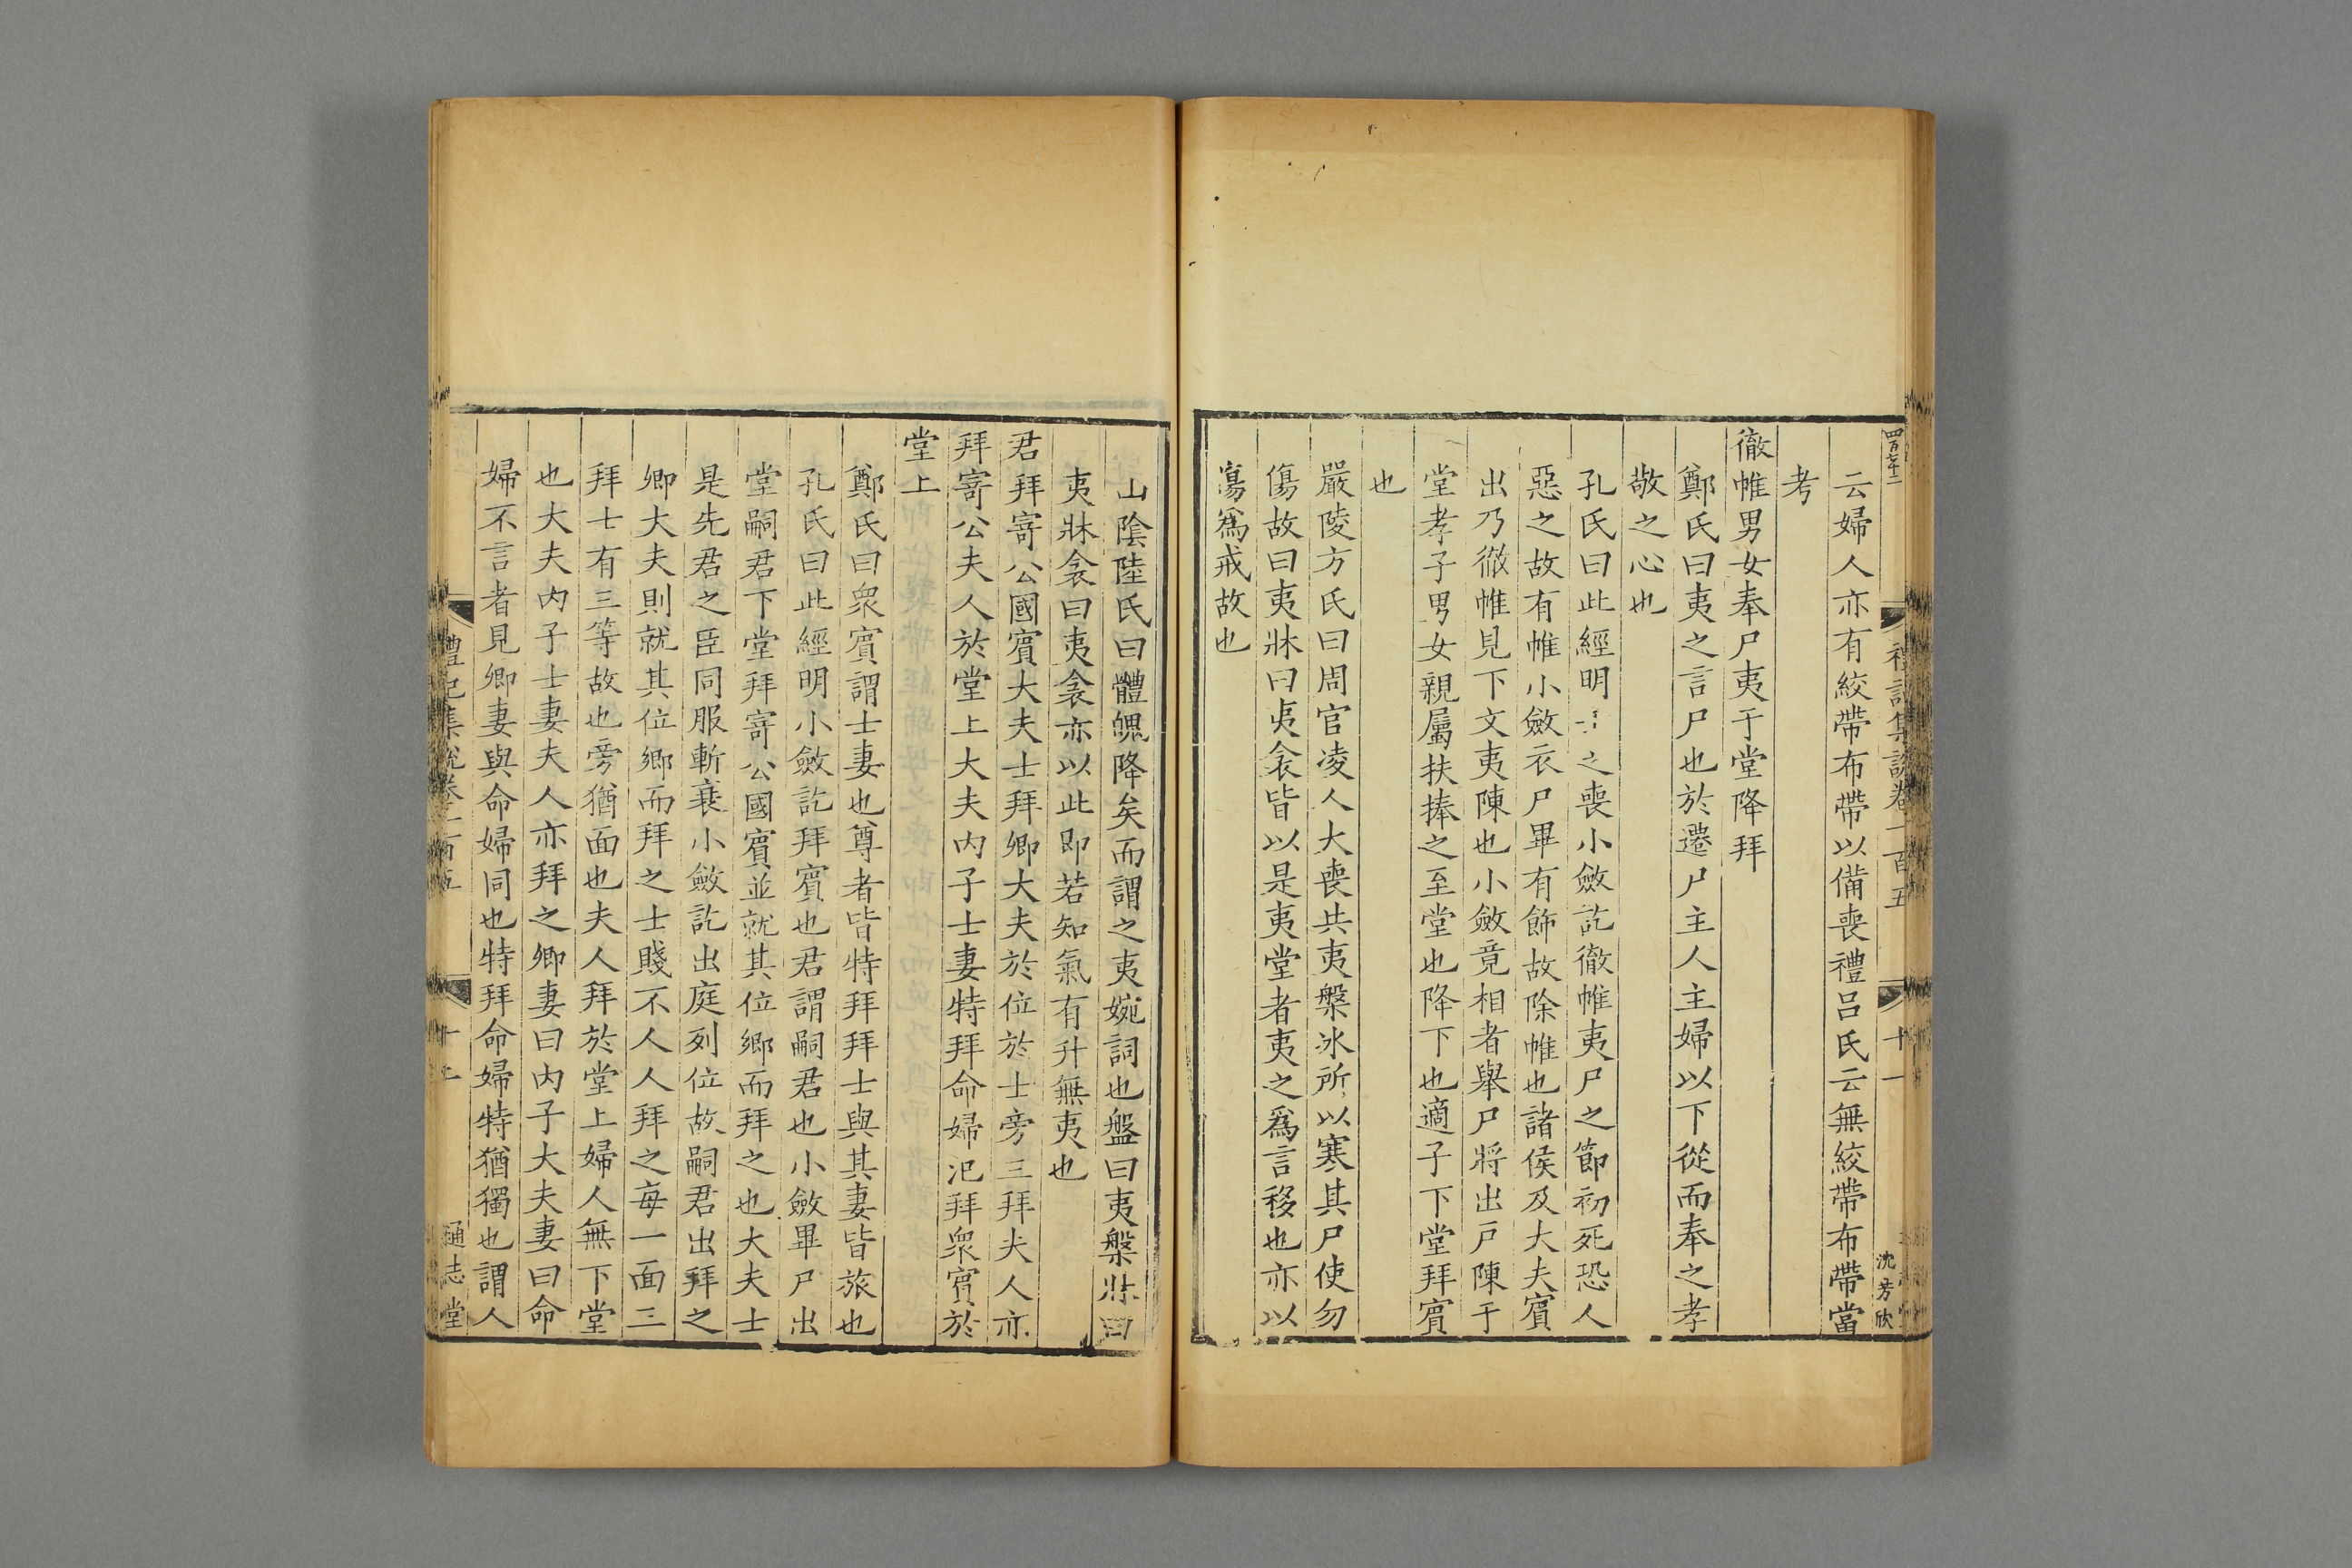 四百七十二
禮記集說卷一百五
十一
沈芳欣
云婦人亦有絞帶布帶以備喪禮呂氏云無絞帶布帶當
考
徹帷男女奉尸夷于堂降拜
鄭氏曰夷之言尸也於遷尸主人主婦以下從而奉之孝
敬之心也
孔氏曰此經明之喪小斂訖徹帷夷尸之節初死恐人
惡之故有帷小斂衣尸畢有飾故除帷也諸侯及大夫賓
出乃徹帷見下文夷陳也小斂竟相者舉尸將出戶陳于
堂孝子男女親屬扶捧之至堂也降下也適子下堂拜賓
也
嚴陵方氏曰周官凌人大喪共夷槃冰所以寒其尸使勿
傷故曰夷牀曰夷衾皆以是夷堂者夷之爲言移也亦以
傷爲戒故也
山陰陸氏曰體魄降矣而謂之夷婉詞也盤曰夷槃牀曰
夷牀衾曰夷衾亦以此即若知氣有升無夷也
君拜寄公國賓大夫士拜卿大夫於位於士旁三拜夫人亦
拜寄公夫人於堂上大夫內子士妻特拜命婦氾拜衆賓於
堂上
鄭氏曰衆賓謂士妻也尊者皆特拜拜士與其妻皆旅也
孔氏曰此經明小斂訖拜賓也君謂嗣君也小斂畢尸出
堂嗣君下堂拜寄公國賓並就其位鄉而拜之也大夫士
是先君之臣同服斬衰小斂訖出庭列位故嗣君出拜之
卿大夫則就其位鄉而拜之士賤不人人拜之每一面三
拜士有三等故也旁猶面也夫人拜於堂上婦人無下堂
也大夫內子士妻夫人亦拜之卿妻曰內子大夫妻曰命
婦不言者見卿妻與命婦同也特拜命婦特猶獨也謂人
禮記集說卷一百五
通志堂